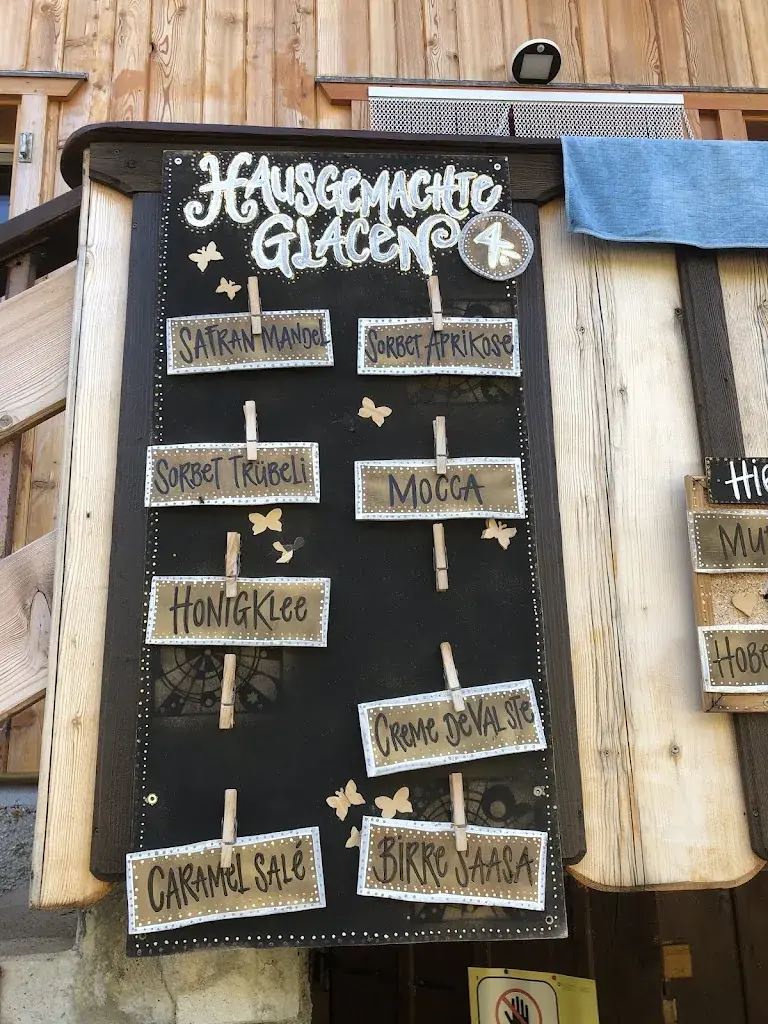 Hausgemachte
Glacen 4.-
Safran Mandel
Sorbet Aprikose
Sorbet Trübeli
Mocca
Honigklee
Creme de Val Ste
Caramel Salé
Birre Saasa